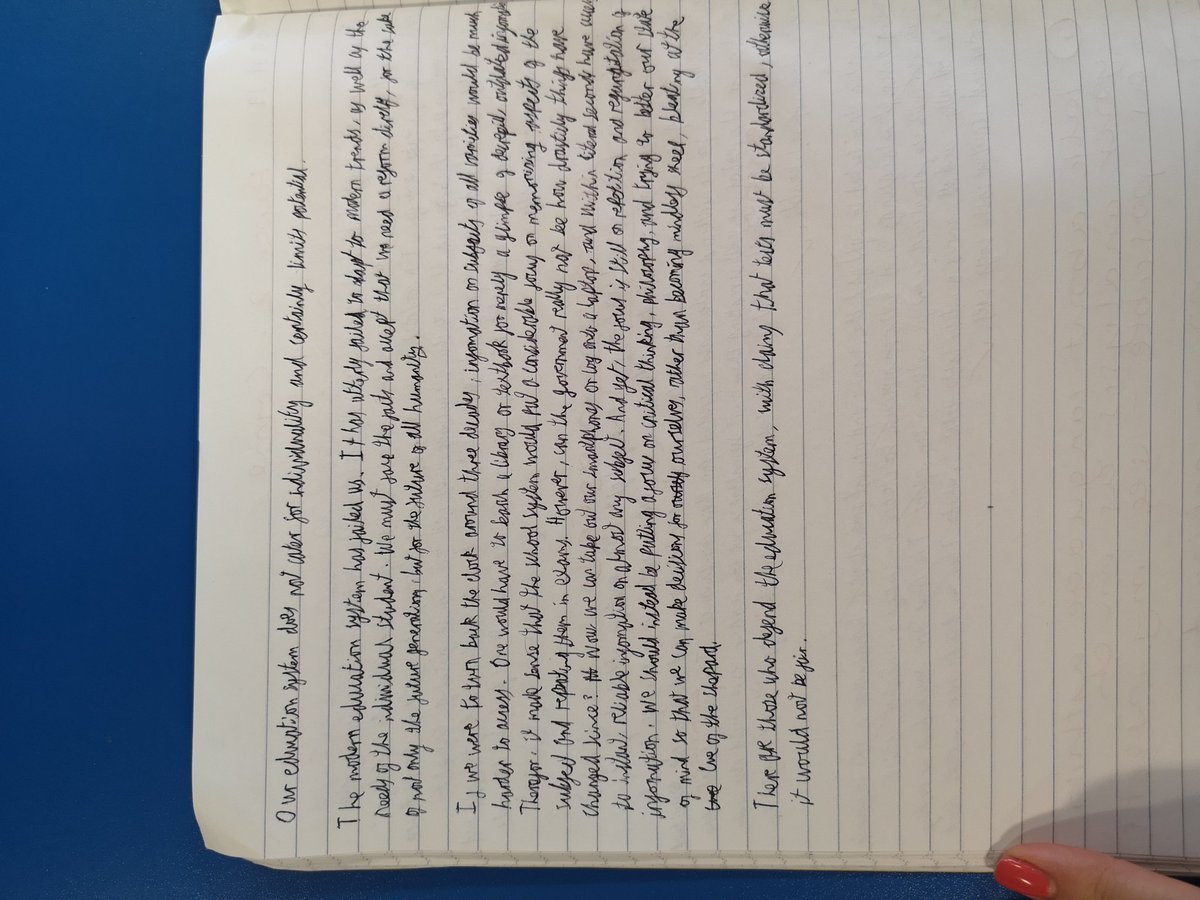 Our education system does not cater for individuality and certainly limits potential.
The modern education system has failed us. It has utterly failed to adapt to modern trends, as well as the
needs of the individual student. We must face the facts and accept that we need a reform direly, for the sake
of not only the future generation, but for the future of all humanity.
If we were to turn back the clock around three decades, information on subjects of all varieties would be much
harder to access. One would have to search a library or textbook for merely a glimpse of decrepit outdated
Therefor, it made sense that the school system would put a considerable focus on memorising aspects of the
subject and repeating them in exams. However, can the government really not be how drastically things have
changed since? Now we can take out our smartphones or log onto a laptop, and within literal seconds have access
to instant, reliable information on almost any subject. And yet, the focus is still on repetition and regurgitation of
information. We should instead be putting a focus on critical thinking, philosophy, and trying to better our state
of mind so that we can make decisions for ourselves, rather than becoming mindless sheep, bleating at the
of the shepard.
There are those who defend the education system, with claims that tests must be standardized, otherwise
it would not be fair.